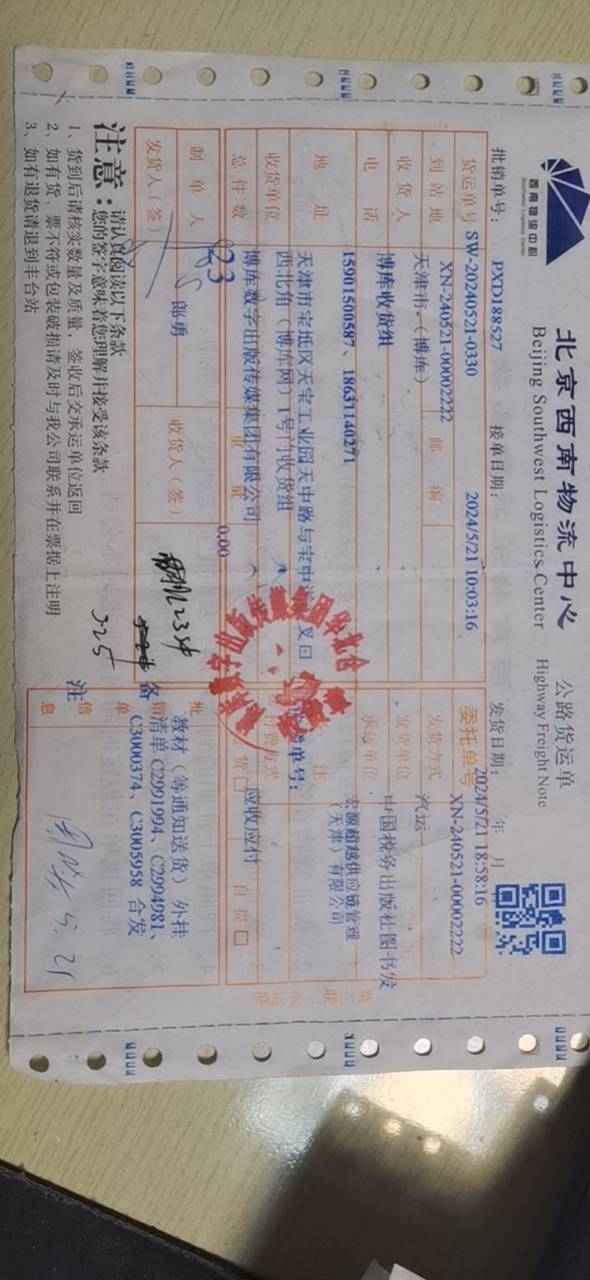 西南物流中心
Southwest Logistics Center
北京西南物流中心 公路货运单
Beijing Southwest Logistics Center Highway Freight Note
批销单号: PXD188527 接单日期: 2024/5/21 10:03:16 发货日期: 2024/5/21 18:58:16 年 月
货运单号 SW-20240521-0330 委托单号 XN-240521-00002222
XN-240521-00002222
到站地 天津市-（博库） 邮编 发货方式 汽运
收货人 博库收货组 发货单位 中国税务出版社图书发
电话 15901500587、18631140271 承运单位 宏源超越供应链管理
（天津）有限公司
地址 天津市宝坻区天宝工业园天中路与宝中道交叉口
西北角（博库网）1号门收货组 注 单号：
收货单位 博库数字出版传媒集团有限公司 付费方式 应收应付
总件数 823 重量 0.00 货 □ 自提 □
制单人 郎勇
发货人（签） 收货人（签）
325
备注
批销清单信息
教材（等通知送货）外挂
清单 C2991994、C2994981、
C3000374、C3005958 合发
5.21
注意：请认真阅读以下条款
您的签字意味着您理解并接受该条款
1、货到后请核实数量及质量，签收后交承运单位返回
2、如有货、票不符或包装破损请及时与我公司联系并在票据上注明
3、如有退货请退到丰台站
第三联：承运联